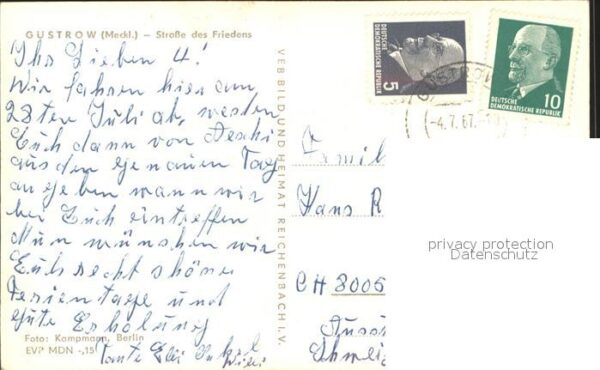 GUSTROW (Meckl.) — Straße des Friedens
Ihr Lieben 4!
Wir fahren hier am
28ten Juli ab, werden
Euch dann von
aus den genauen Tag
angeben wann wir
bei Euch eintreffen
Nun wünschen wir
Euch recht schöne
Ferientage und
gute Erholung
Tante Elli
Foto: Kampmann, Berlin
EVP MDN -,15
VEB BILD UND HEIMAT REICHENBACH I. V.
5
DEUTSCHE
DEMOKRATISCHE REPUBLIK
10
DEUTSCHE
DEMOKRATISCHE REPUBLIK
GUSTROW
-4.7.67.
Famil
Hans R
CH 8005
Schweiz
privacy protection
Datenschutz